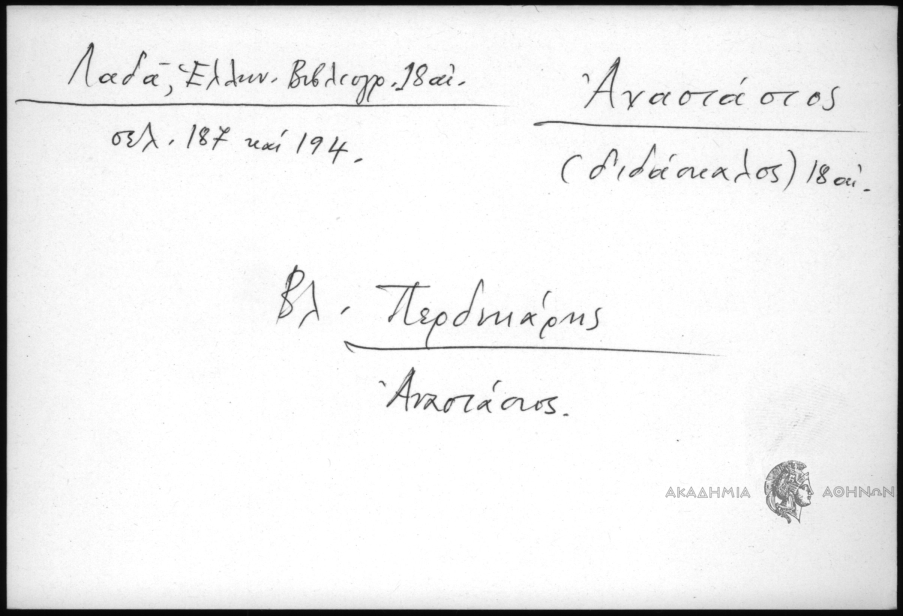 Λαδᾶ, Ἑλλην. Βιβλιογρ. 18 αἰ.
σελ. 187 καί 194.
Ἀναστάσιος
(διδάσκαλος) 18 αἰ.
Βλ. Περδικάρης
Ἀναστάσιος.
ΑΚΑΔΗΜΙΑ ΑΘΗΝΩΝ